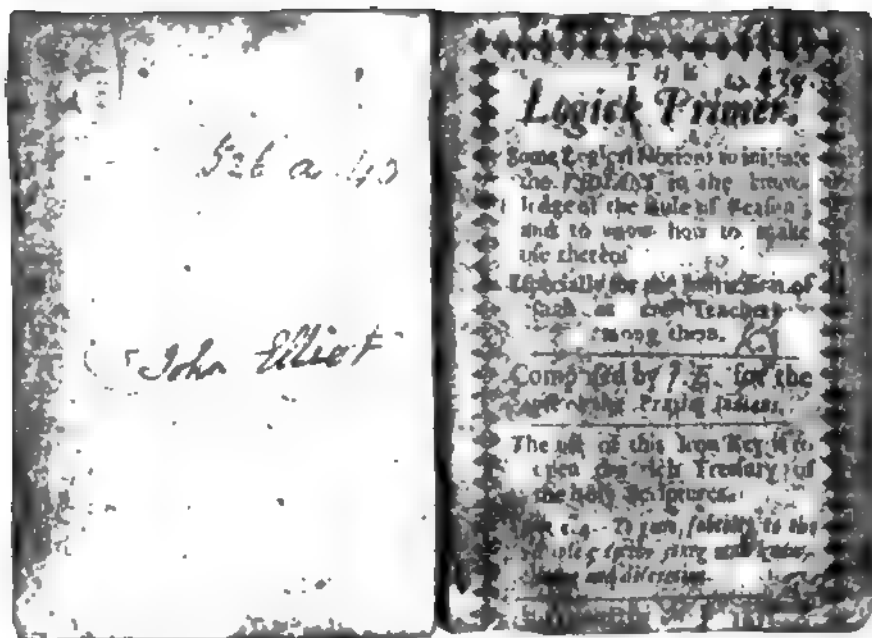 526 a 43
John Elliot
THE
Logick Primer.
Some Logical Notions to initiate
the INDIANS in the know-
ledge of the Rule of Reason;
and to know how to make
use thereof.
Especially for the Instruction of
such as are Teachers
among them.
Composed by J. E. for the
use of the Praying Indians.
The use of this Iron Key is to
open the rich Treasury of
the holy Scriptures.
to give to the
and discretion.